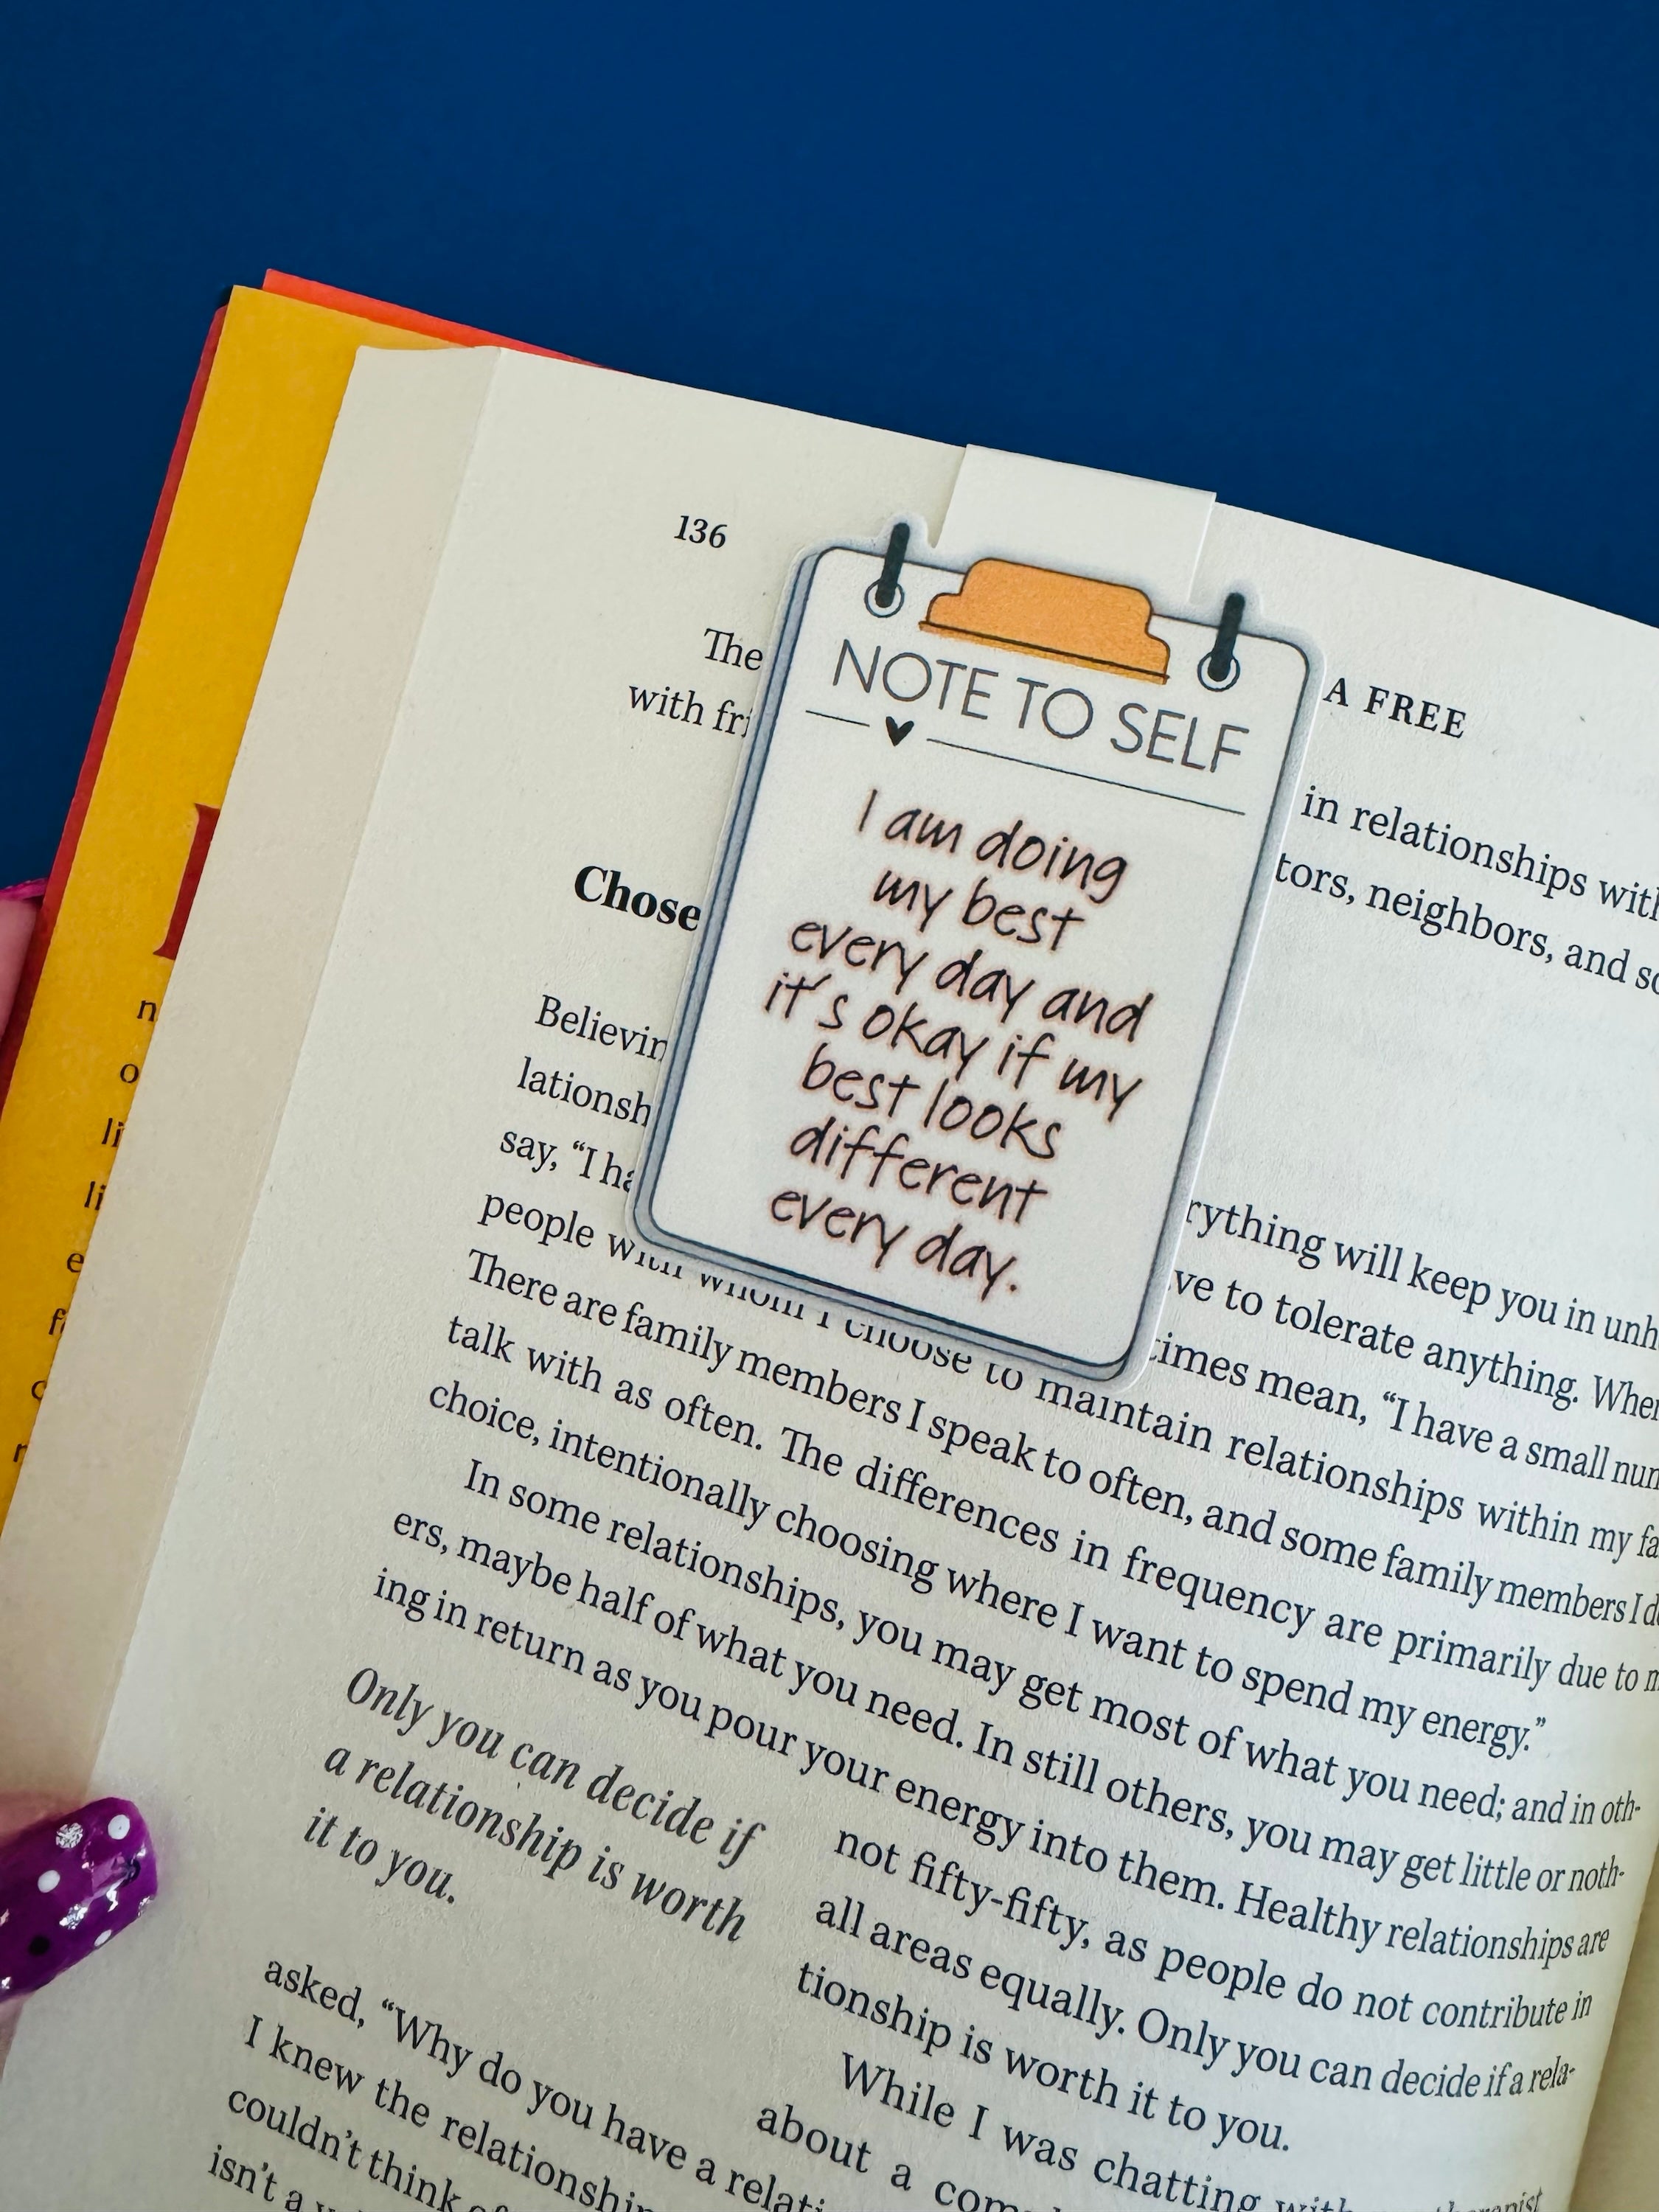 136
A FREE
The
in relationships with
with fri
tors, neighbors, and so
Chose
Believin
rything will keep you in unh
lationsh
ve to tolerate anything. When
say, “I ha
times mean, “I have a small num
people with whom I choose to maintain relationships within my fa
There are family members I speak to often, and some family members I do
talk with as often. The differences in frequency are primarily due to m
choice, intentionally choosing where I want to spend my energy.”
In some relationships, you may get most of what you need; and in oth-
ers, maybe half of what you need. In still others, you may get little or noth-
ing in return as you pour your energy into them. Healthy relationships are
not fifty-fifty, as people do not contribute in
all areas equally. Only you can decide if a rela-
tionship is worth it to you.
Only you can decide if
a relationship is worth
it to you.
While I was chatting with
therapist
about a
asked, “Why do you have a relati
I knew the relationship
couldn’t think of
isn’t a
NOTE TO SELF
I am doing
my best
every day and
it's okay if my
best looks
different
every day.
n
o
li
li
e
f
r